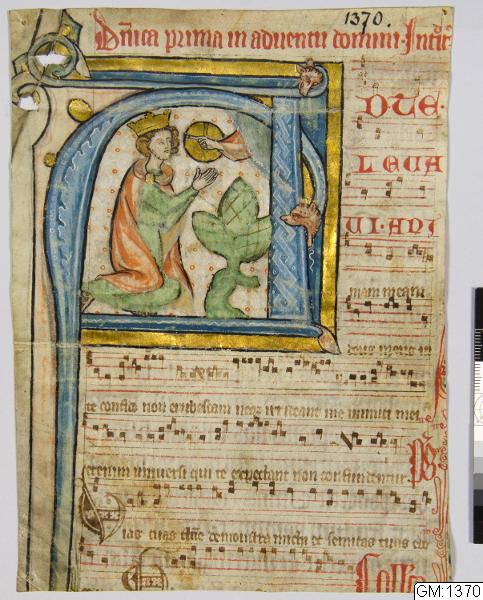 1370.
Dnica prima in adventu domini. Introit
D TE.
LEVA
VI. ANI
mam meam
deus meus in
te confido non erubescam neqz irrideant me inimici mei
etenim universi qui te expectant non confundentur. Ps
Vias tuas dne demonstra michi et semitas tuas edo
GM:1370